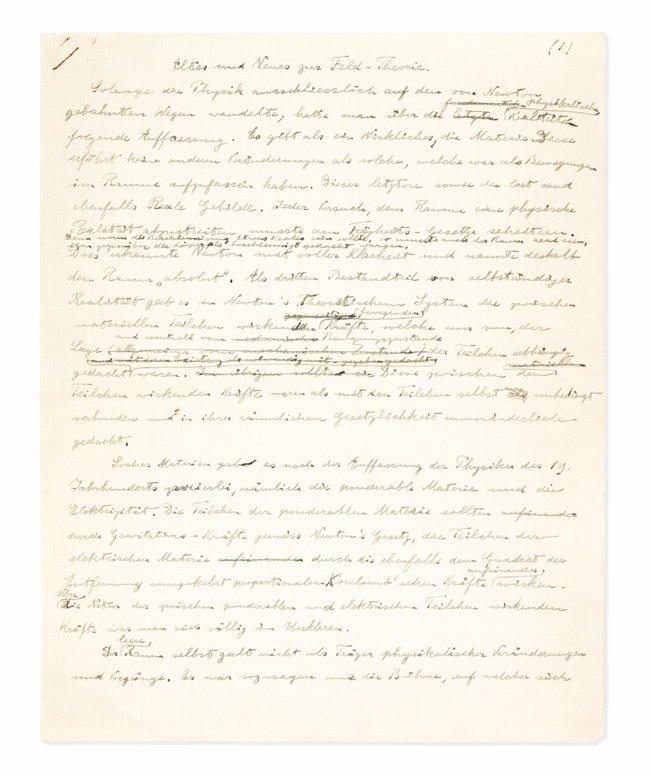 (1)
Altes und Neues zur Feld-Theorie.
Solange die Physik ausschliesslich auf den von Newton
physikalische
gebahnten Wegen wandelte, hatte man über die letzten Realität
folgende Auffassung. Es gibt als ein Wirkliches, die Materie. Diese
erfährt keine anderen Veränderungen als solche, welche wir als Bewegungen
im Raume aufzufassen haben. Dieser letztere sowie die Zeit sind
ebenfalls Reale Gebilde. Jeder Versuch, dem Raume eine physische
Realität abzustreiten musste am Trägheits-Gesetze scheitern.
Denn wenn die Beschleunigung etwas Reales sein sollte, so musste auch der Raum real sein,
Dies erkannte Newton mit voller Klarheit und nannte deshalb
den Raum „absolut“. Als dritten Bestandteil von selbständiger
Realität gab es in Newton's theoretischem System die zwischen
bewegenden
materiellen Teilchen wirkenden Kräfte, welche nur von der
und eventuell vom Bewegungszustande
Lage der Teilchen abhängig
gedacht waren. Diese zwischen den
Teilchen wirkenden Kräfte waren als mit den Teilchen selbst unbedingt
verbunden und in ihrer räumlichen Gesetzlichkeit unveränderlich
gedacht.
Solcher Materien gab es nach der Auffassung der Physiker des 19.
Jahrhunderts zweierlei, nämlich die ponderable Materie und die
Elektrizität. Die Teilchen der ponderablen Materie sollten aufeinander
durch Gravitations-Kräfte gemäss Newton's Gesetz, die Teilchen der
elektrischen Materie aufeinander durch die ebenfalls dem Quadrat der
aufeinander
Entfernung umgekehrt proportionalen Coulomb'schen Kräfte wirken.
Über
Die Natur der zwischen ponderablen und elektrischen Teilchen wirkenden
Kräfte war man sich völlig im Unklaren.
leere,
Der Raum selbst galt nicht als Träger physikalischer Veränderungen
und Vorgänge. Er war sozusagen nur die Bühne, auf welcher sich